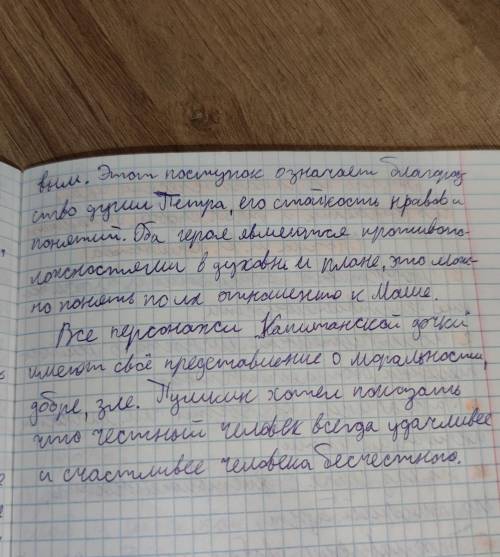 вым. Этот поступок означает благород
ство души Петра, его стойкость нравов и
понятий. Оба героя являются противопо-
ложностями в духовн м плане, это мож-
но понять по их отношению к Маше.
Все персонажи "Капитанской дочки"
имеют своё представление о моральности,
добре, зле. Пушкин хотел показать
что честный человек всегда удачливее
и счастливее человека бесчестного.